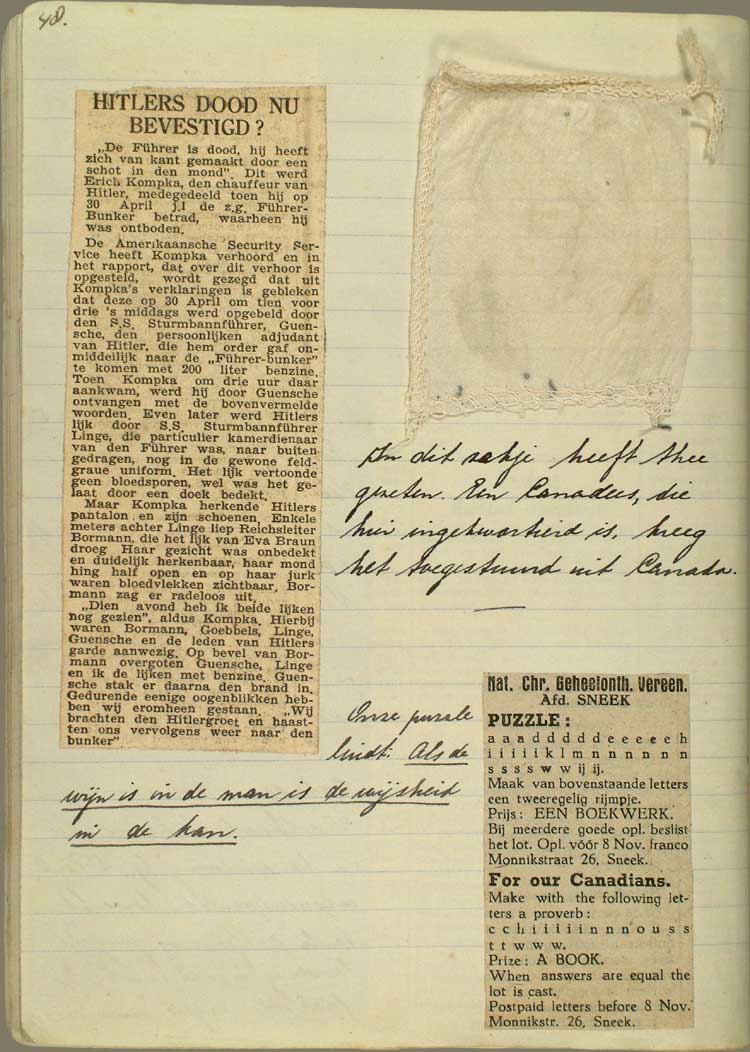 48.
HITLERS DOOD NU
BEVESTIGD?
„De Führer is dood, hij heeft
zich van kant gemaakt door een
schot in den mond". Dit werd
Erich Kompka, den chauffeur van
Hitler, medegedeeld toen hij op
30 April j.l de z.g. Führer-
Bunker betrad, waarheen hij
was ontboden.
De Amerikaansche Security Ser-
vice heeft Kompka verhoord en in
het rapport, dat over dit verhoor is
opgesteld, wordt gezegd dat uit
Kompka's verklaringen is gebleken
dat deze op 30 April om tien voor
drie 's middags werd opgebeld door
den S.S. Sturmbannführer, Guen-
sche, den persoonlijken adjudant
van Hitler, die hem order gaf on-
middellijk naar de „Führer-bunker"
te komen met 200 liter benzine.
Toen Kompka om drie uur daar
aankwam, werd hij door Guensche
ontvangen met de bovenvermelde
woorden. Even later werd Hitlers
lijk door S.S. Sturmbannführer
Linge, die particulier kamerdienaar
van den Führer was, naar buiten
gedragen, nog in de gewone feld-
graue uniform. Het lijk vertoonde
geen bloedsporen, wel was het ge-
laat door een doek bedekt.
Maar Kompka herkende Hitlers
pantalon en zijn schoenen. Enkele
meters achter Linge liep Reichsleiter
Bormann, die het lijk van Eva Braun
droeg Haar gezicht was onbedekt
en duidelijk herkenbaar, haar mond
hing half open en op haar jurk
waren bloedvlekken zichtbaar. Bor-
mann zag er radeloos uit.
„Dien avond heb ik beide lijken
nog gezien", aldus Kompka. Hierbij
waren Bormann, Goebbels, Linge,
Guensche en de leden van Hitlers
garde aanwezig. Op bevel van Bor-
mann overgoten Guensche, Linge
en ik de lijken met benzine. Guen-
sche stak er daarna den brand in.
Gedurende eenige oogenblikken heb-
ben wij eromheen gestaan. „Wij
brachten den Hitlergroet en haast-
ten ons vervolgens weer naar den
bunker"
In dit zakje heeft thee
gezeten. Een Canadees, die
hier ingekwartierd is, kreeg
het toegestuurd uit Canada.
Onze puzzle
luidt: Als de
wijn is in de man is de wijsheid
in de kan.
Nat. Chr. Geheelonth. Vereen.
Afd. SNEEK
PUZZLE:
a a a d d d d d e e e e e h
i i i i i k l m n n n n n n
s s s s w w ij ij.
Maak van bovenstaande letters
een tweeregelig rijmpje.
Prijs: EEN BOEKWERK.
Bij meerdere goede opl. beslist
het lot. Opl. vóór 8 Nov. franco
Monnikstraat 26, Sneek.
For our Canadians.
Make with the following let-
ters a proverb:
c c h i i i i i n n n o u s s
t t w w w.
Prize: A BOOK.
When answers are equal the
lot is cast.
Postpaid letters before 8 Nov.
Monnikstr. 26, Sneek.